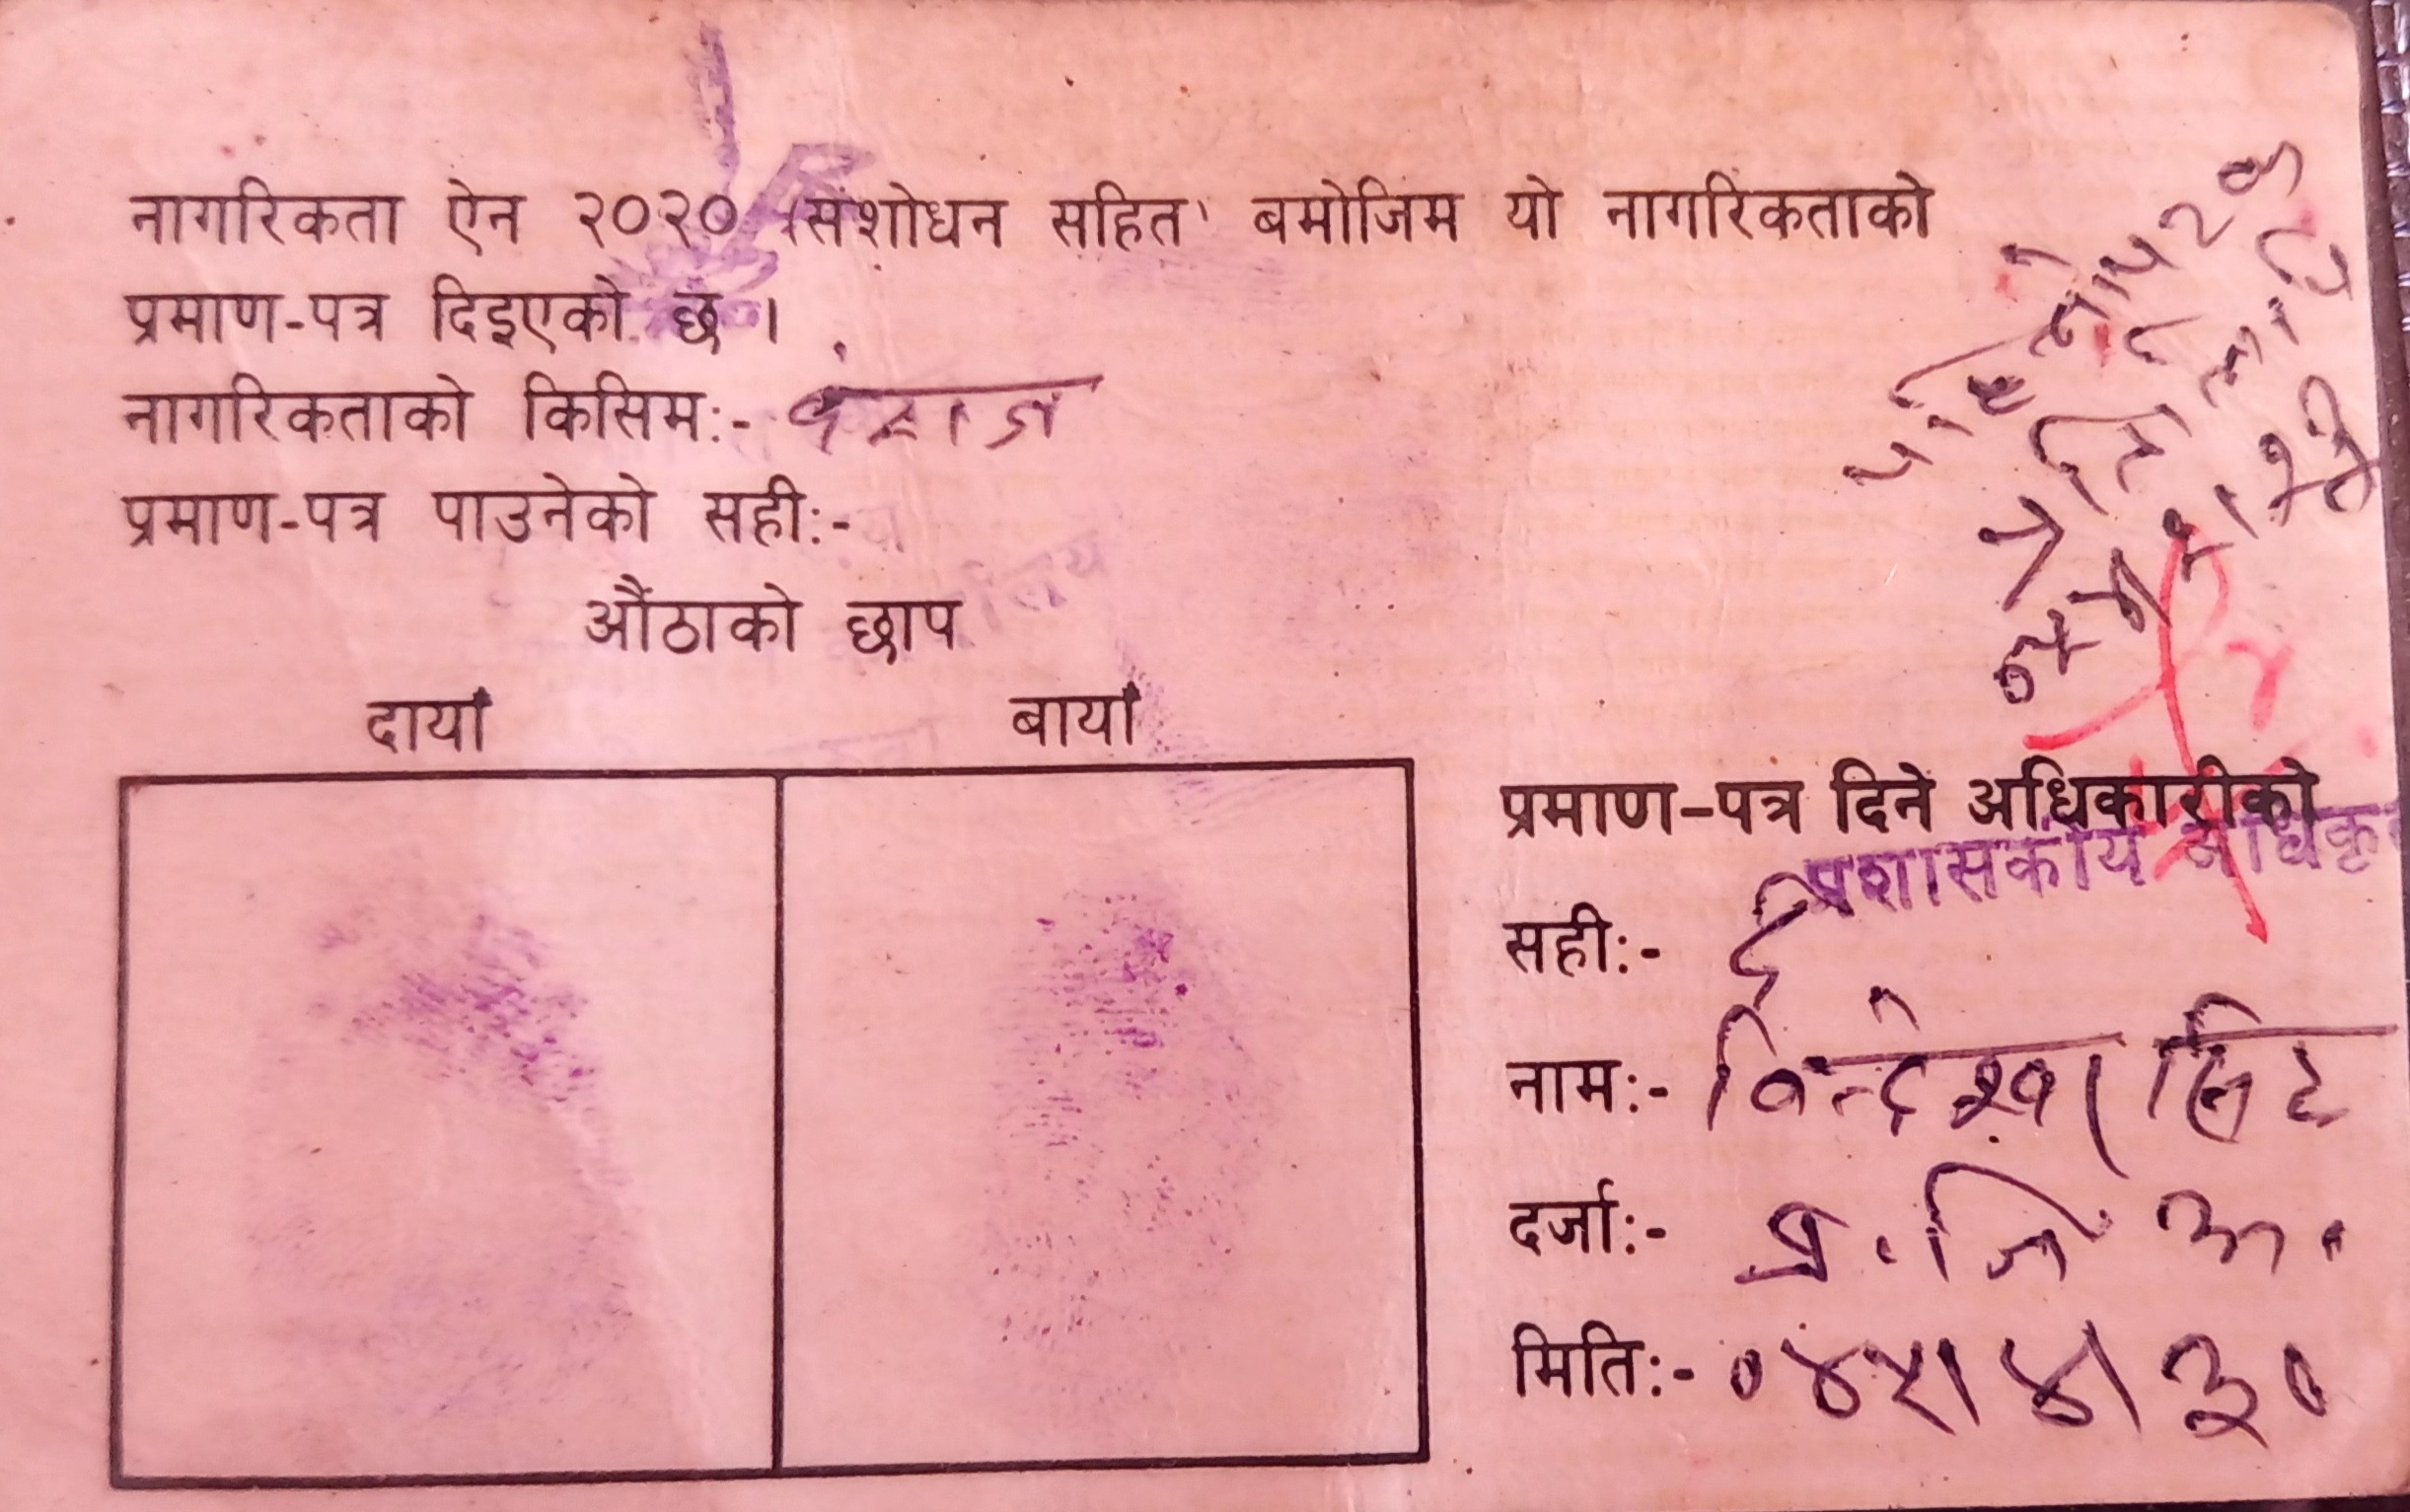 नागरिकता ऐन २०२० (संशोधन सहित) बमोजिम यो नागरिकताको
प्रमाण-पत्र दिइएको छ ।
नागरिकताको किसिम:- वंशज
प्रमाण-पत्र पाउनेको सही:-
औंठाको छाप
दायाँ बायाँ
प्रमाण-पत्र दिने अधिकारीको
प्रशासकीय अधिकृत
सही:-
नाम:- विन्देश्वर सिंह
दर्जा:- प्र. जि अ.
मिति:- ०४५।४।३०